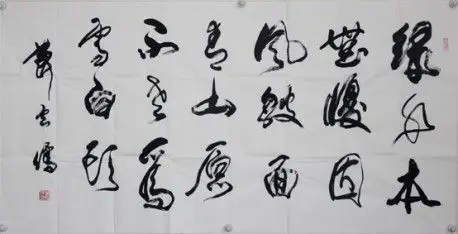 緑水本
無憂因
風皺面
青山原
不老為
雪白頭